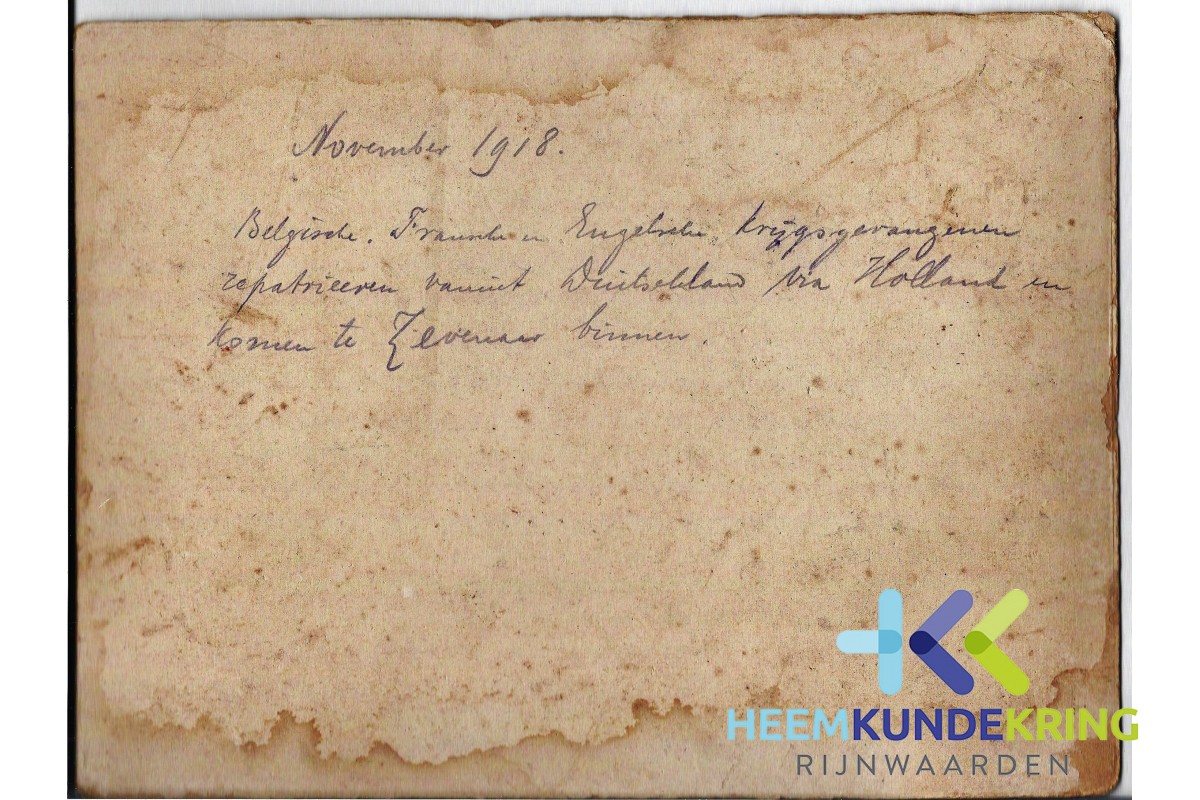 November 1918.
Belgische. Fransche en Engelsche krijgsgevangenen
repatrieeren vanuit Duitschland via Holland en
komen te Zevenaar binnen.
HEEMKUNDEKRING
RIJNWAARDEN